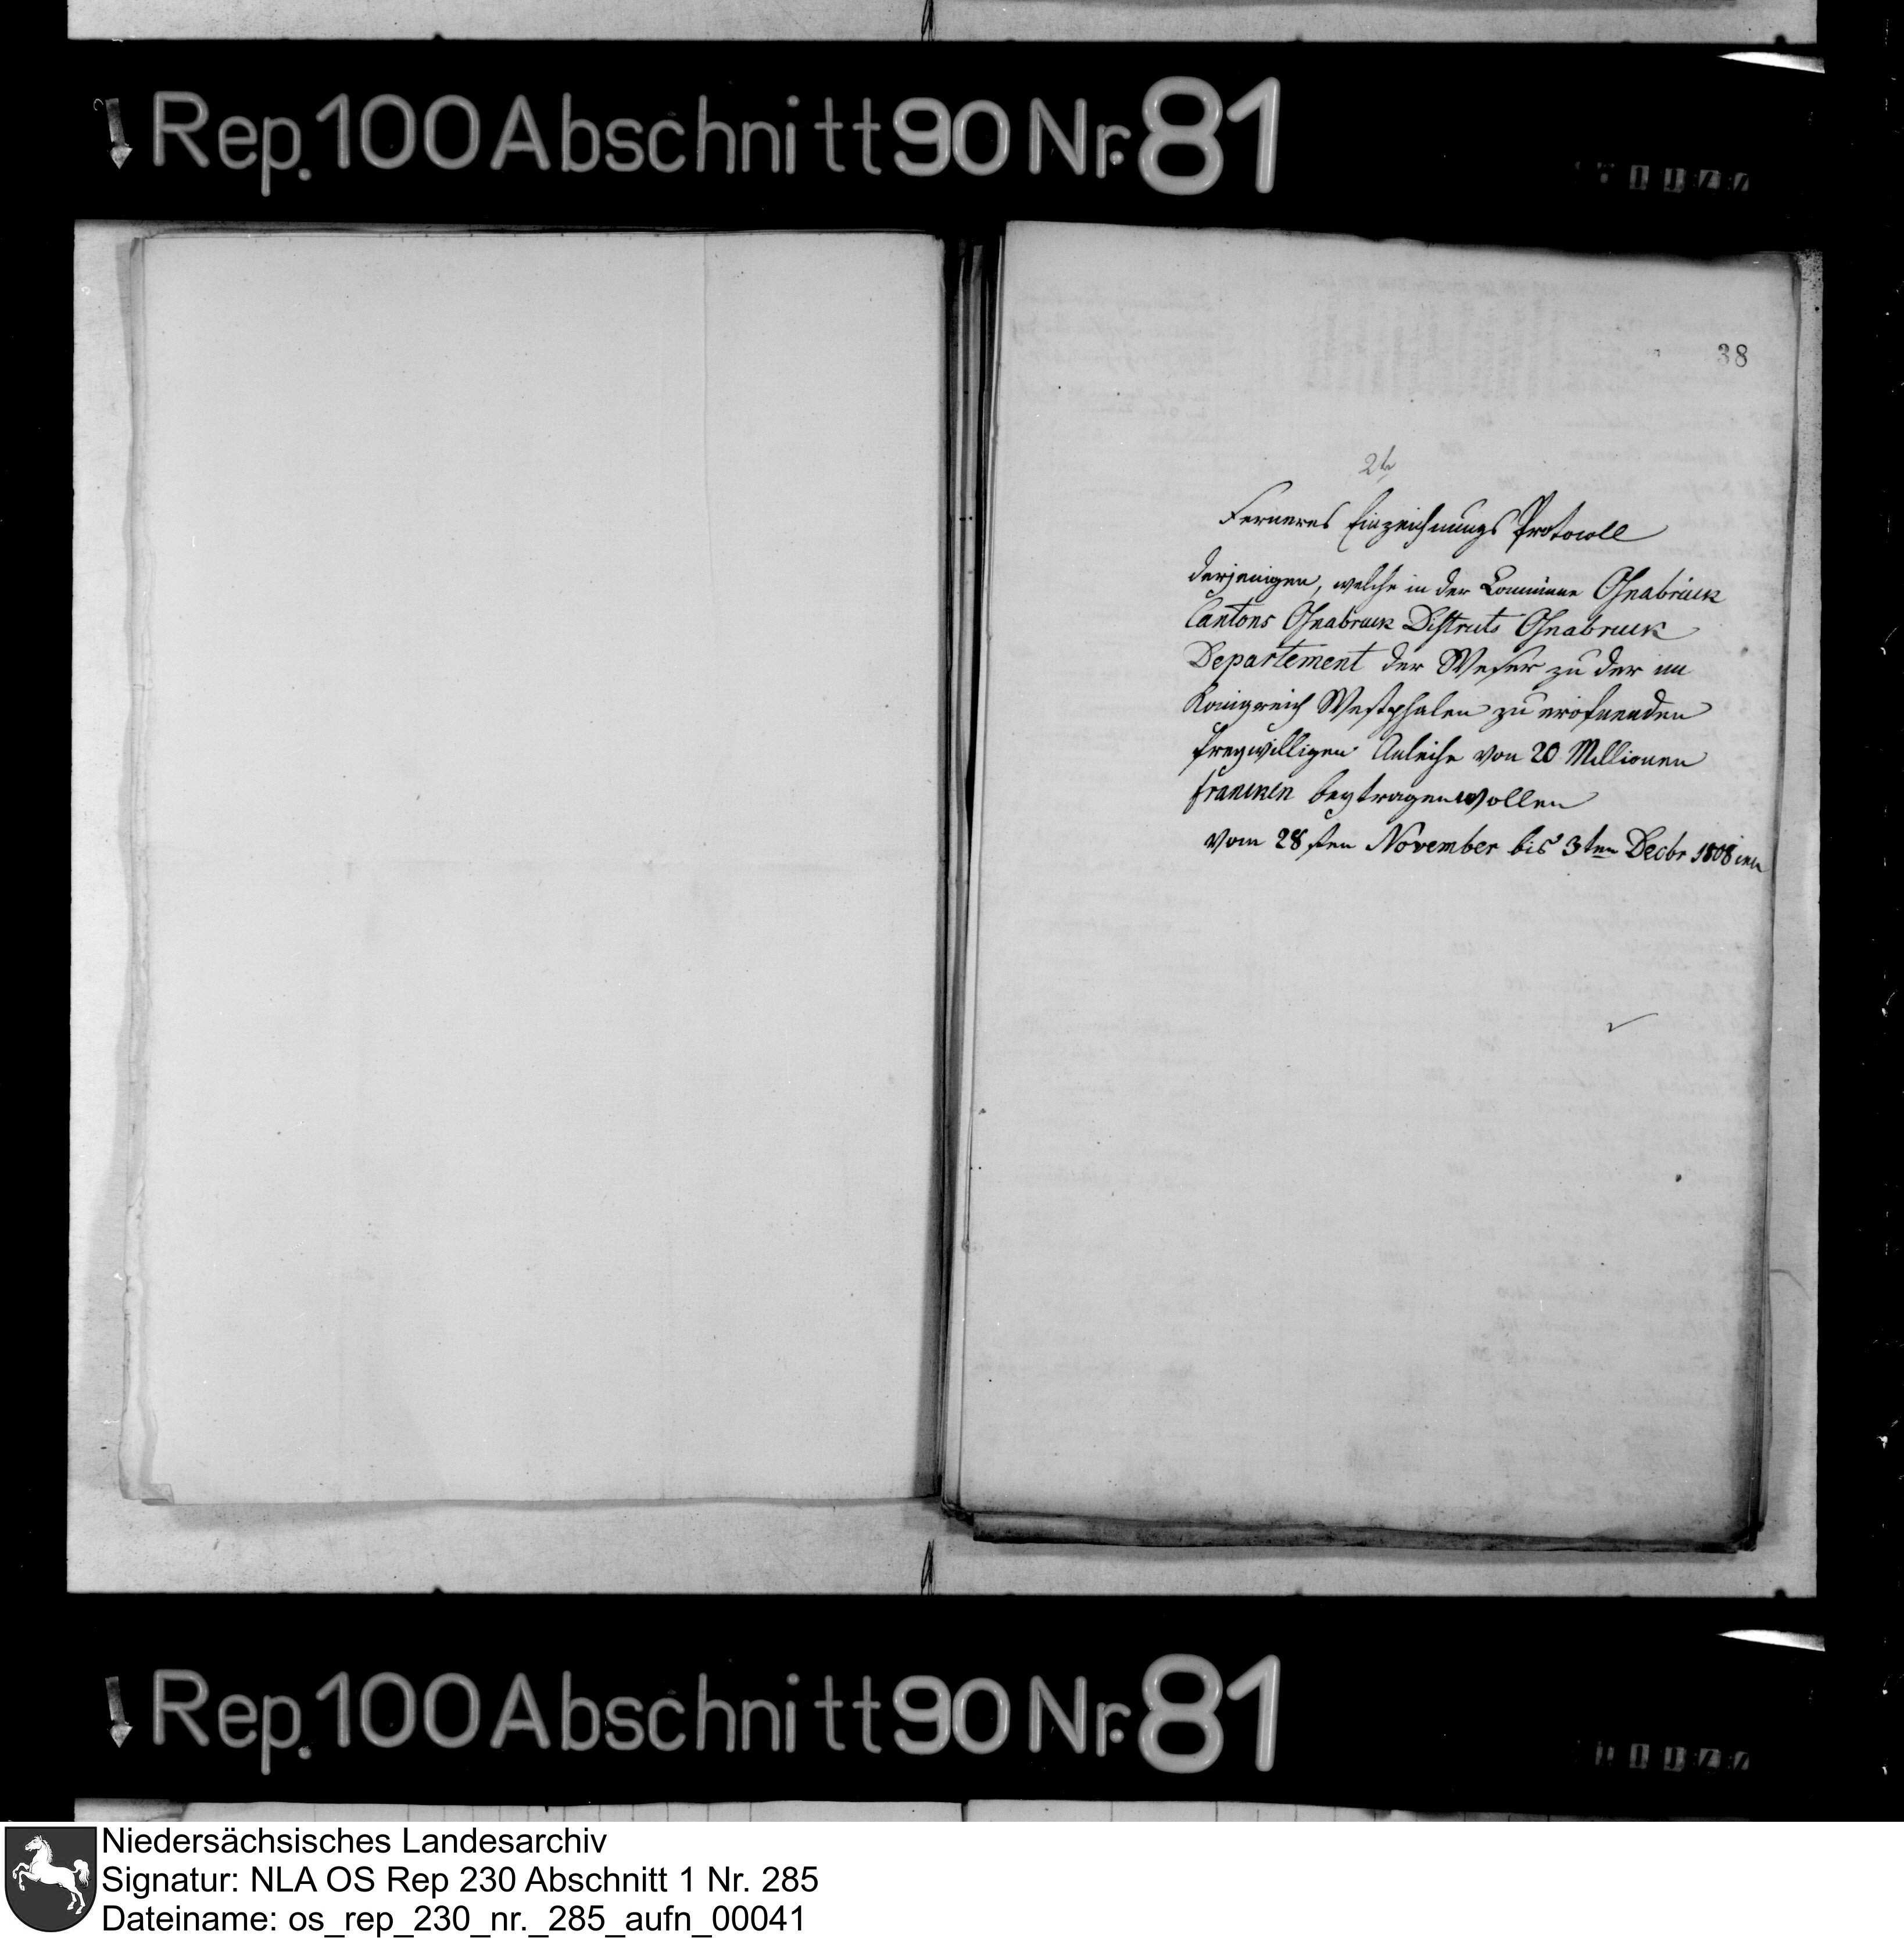 Rep. 100 Abschnitt 90 Nr. 81
38
2te
Ferneres Einzeichnungs Protocoll
derjenigen, welche in der Commune Osnabrück
Cantons Osnabruck Districts Osnabruck
Departement der Weser zu der im
Königreich Westphalen zu eröfnenden
freywilligen Anleihe von 20 Millionen
francken beytragen wollen
vom 28sten November bis 3ten Decbr 1808
Rep. 100 Abschnitt 90 Nr. 81
Niedersächsisches Landesarchiv
Signatur: NLA OS Rep 230 Abschnitt 1 Nr. 285
Dateiname: os_rep_230_nr._285_aufn_00041